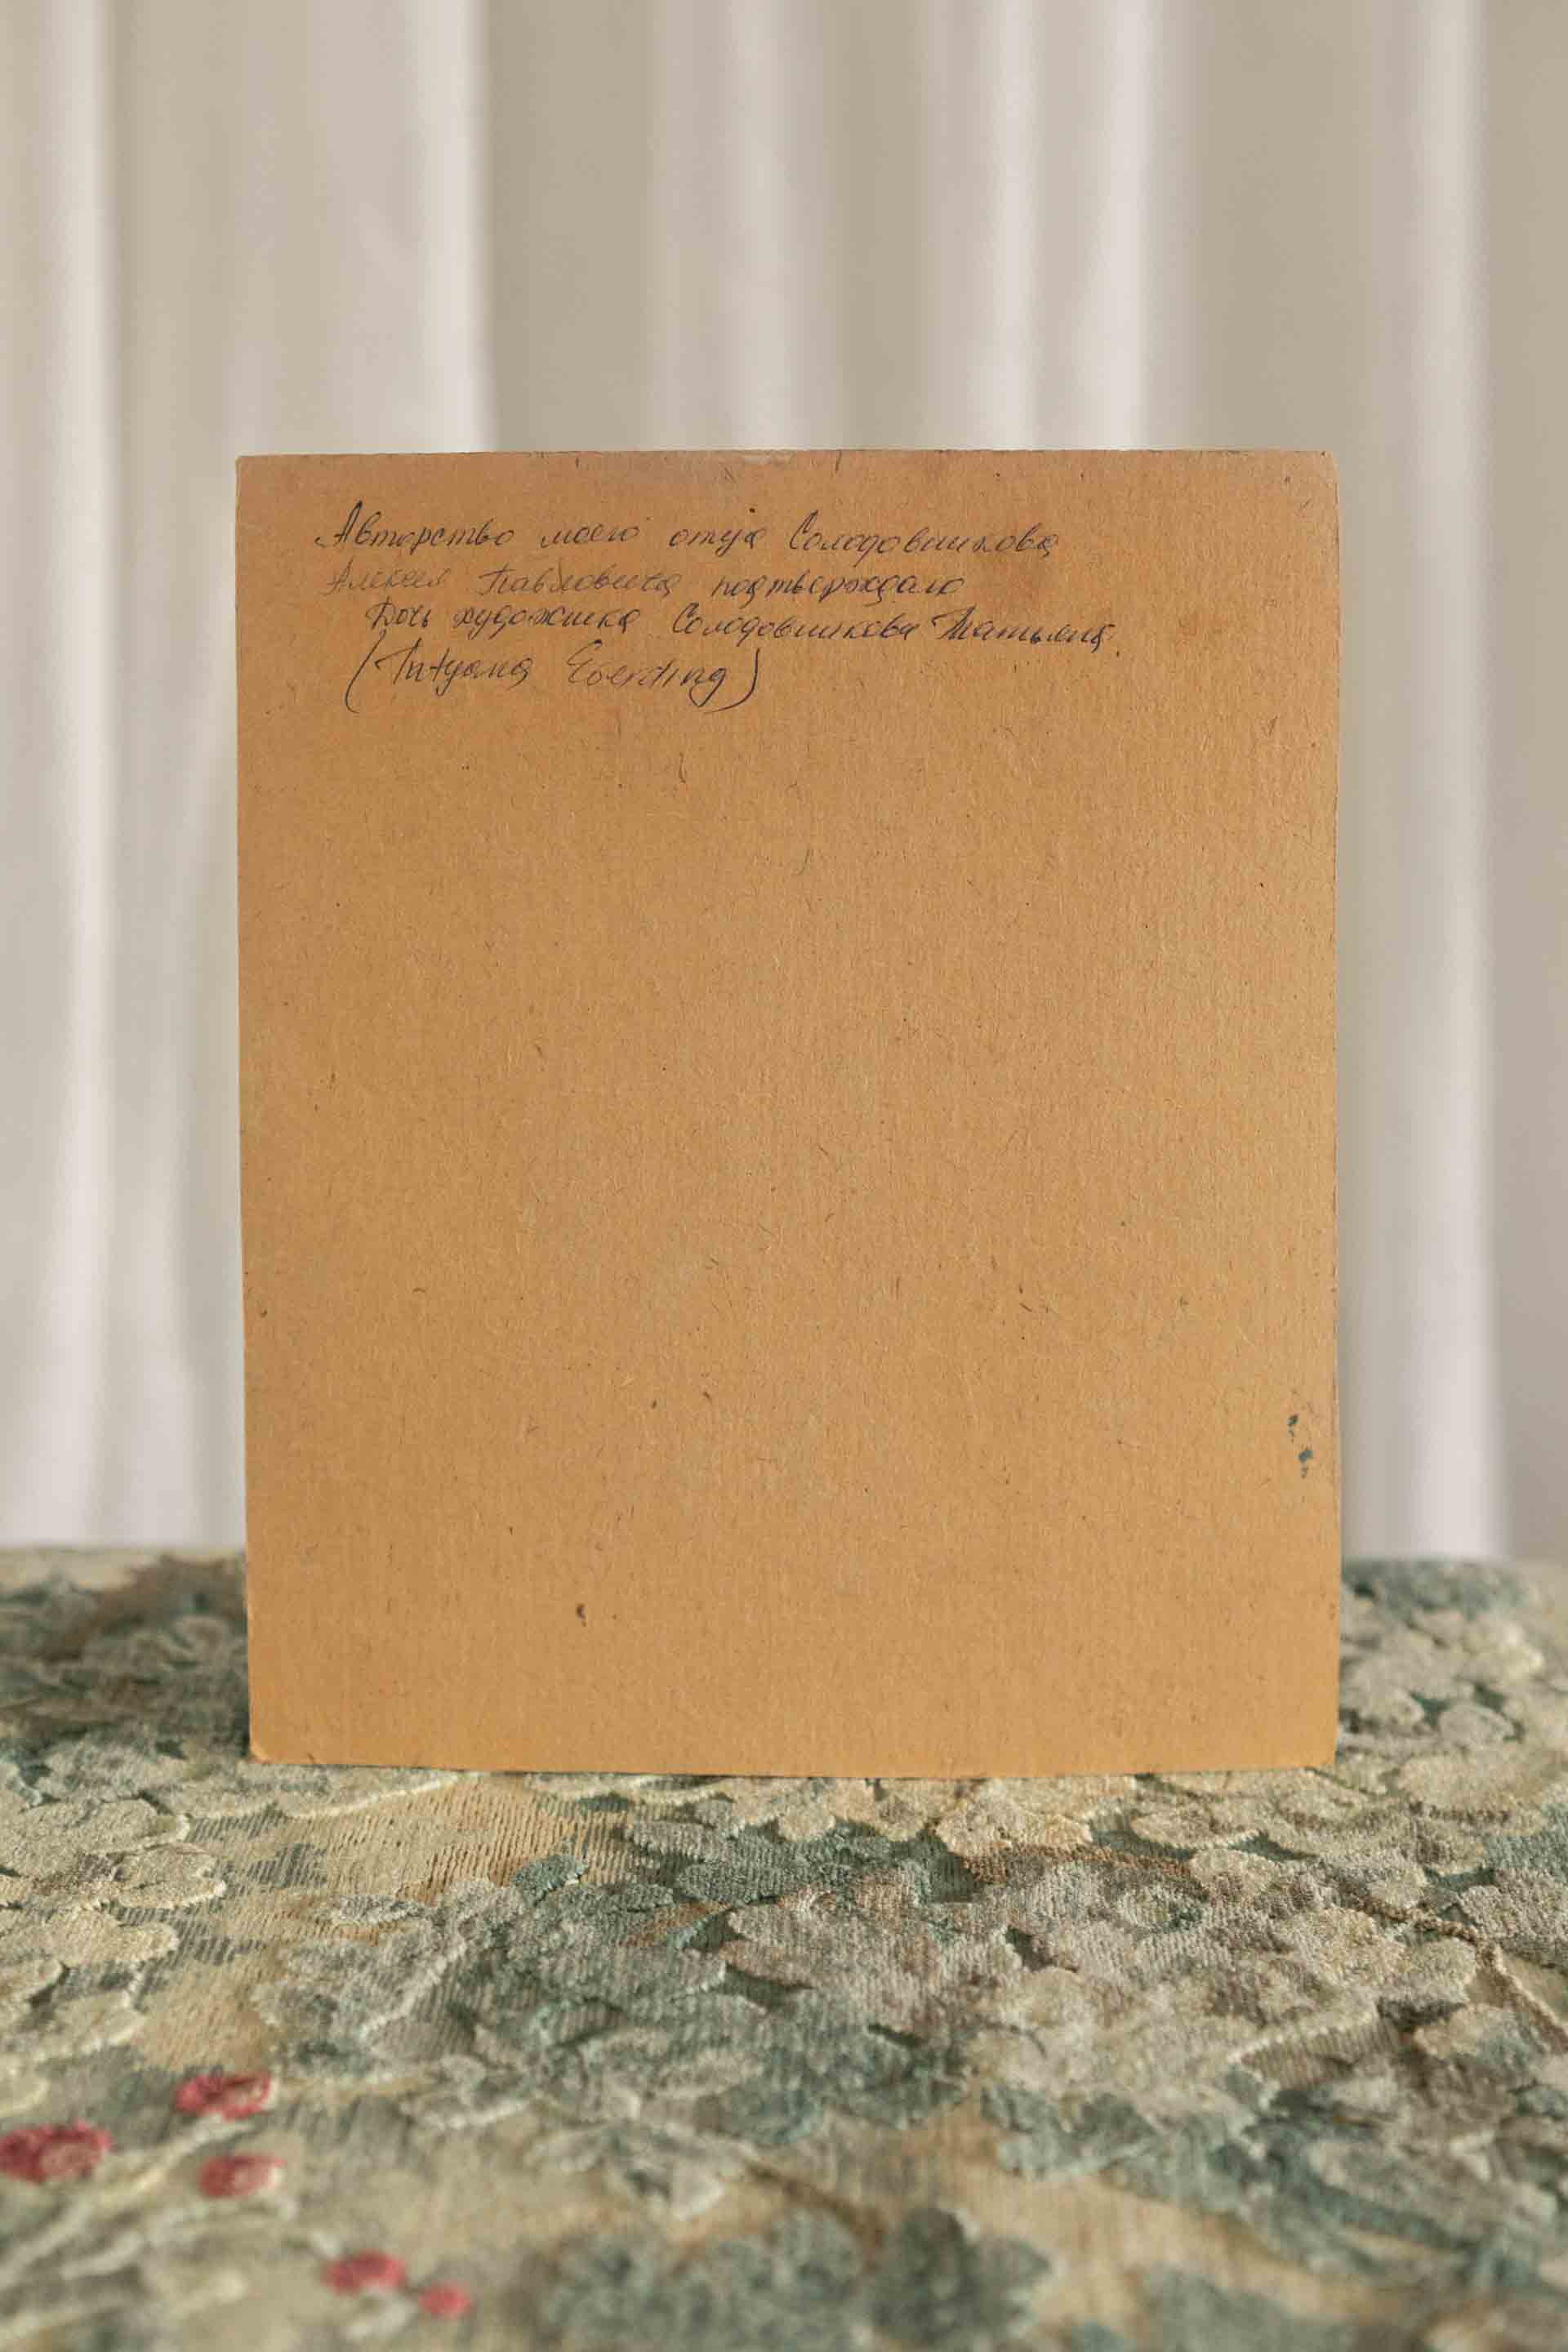 Авторство моего отца Солодовникова
Алексея Павловича подтверждаю
Дочь художника Солодовникова Татьяна.
(Tatyana Eberding)